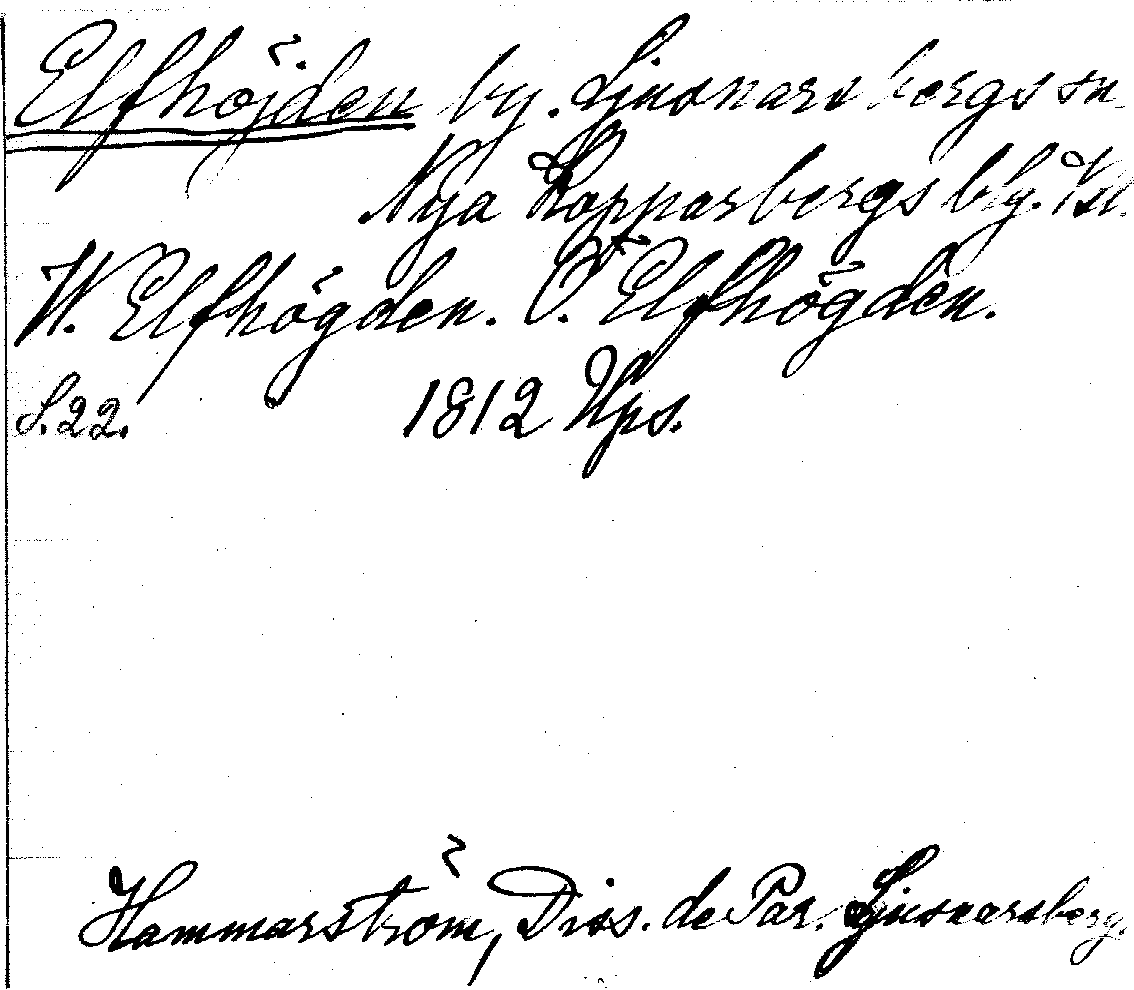 Elfhöjden by. Ljusnarsbergs sn
Nya Kopparbergs blg. Vstl.
W. Elfhögden. Ö. Elfhögden.
S. 22. 1812 Ups.
Hammarström, Diss. de Par. Ljusnarsberg.